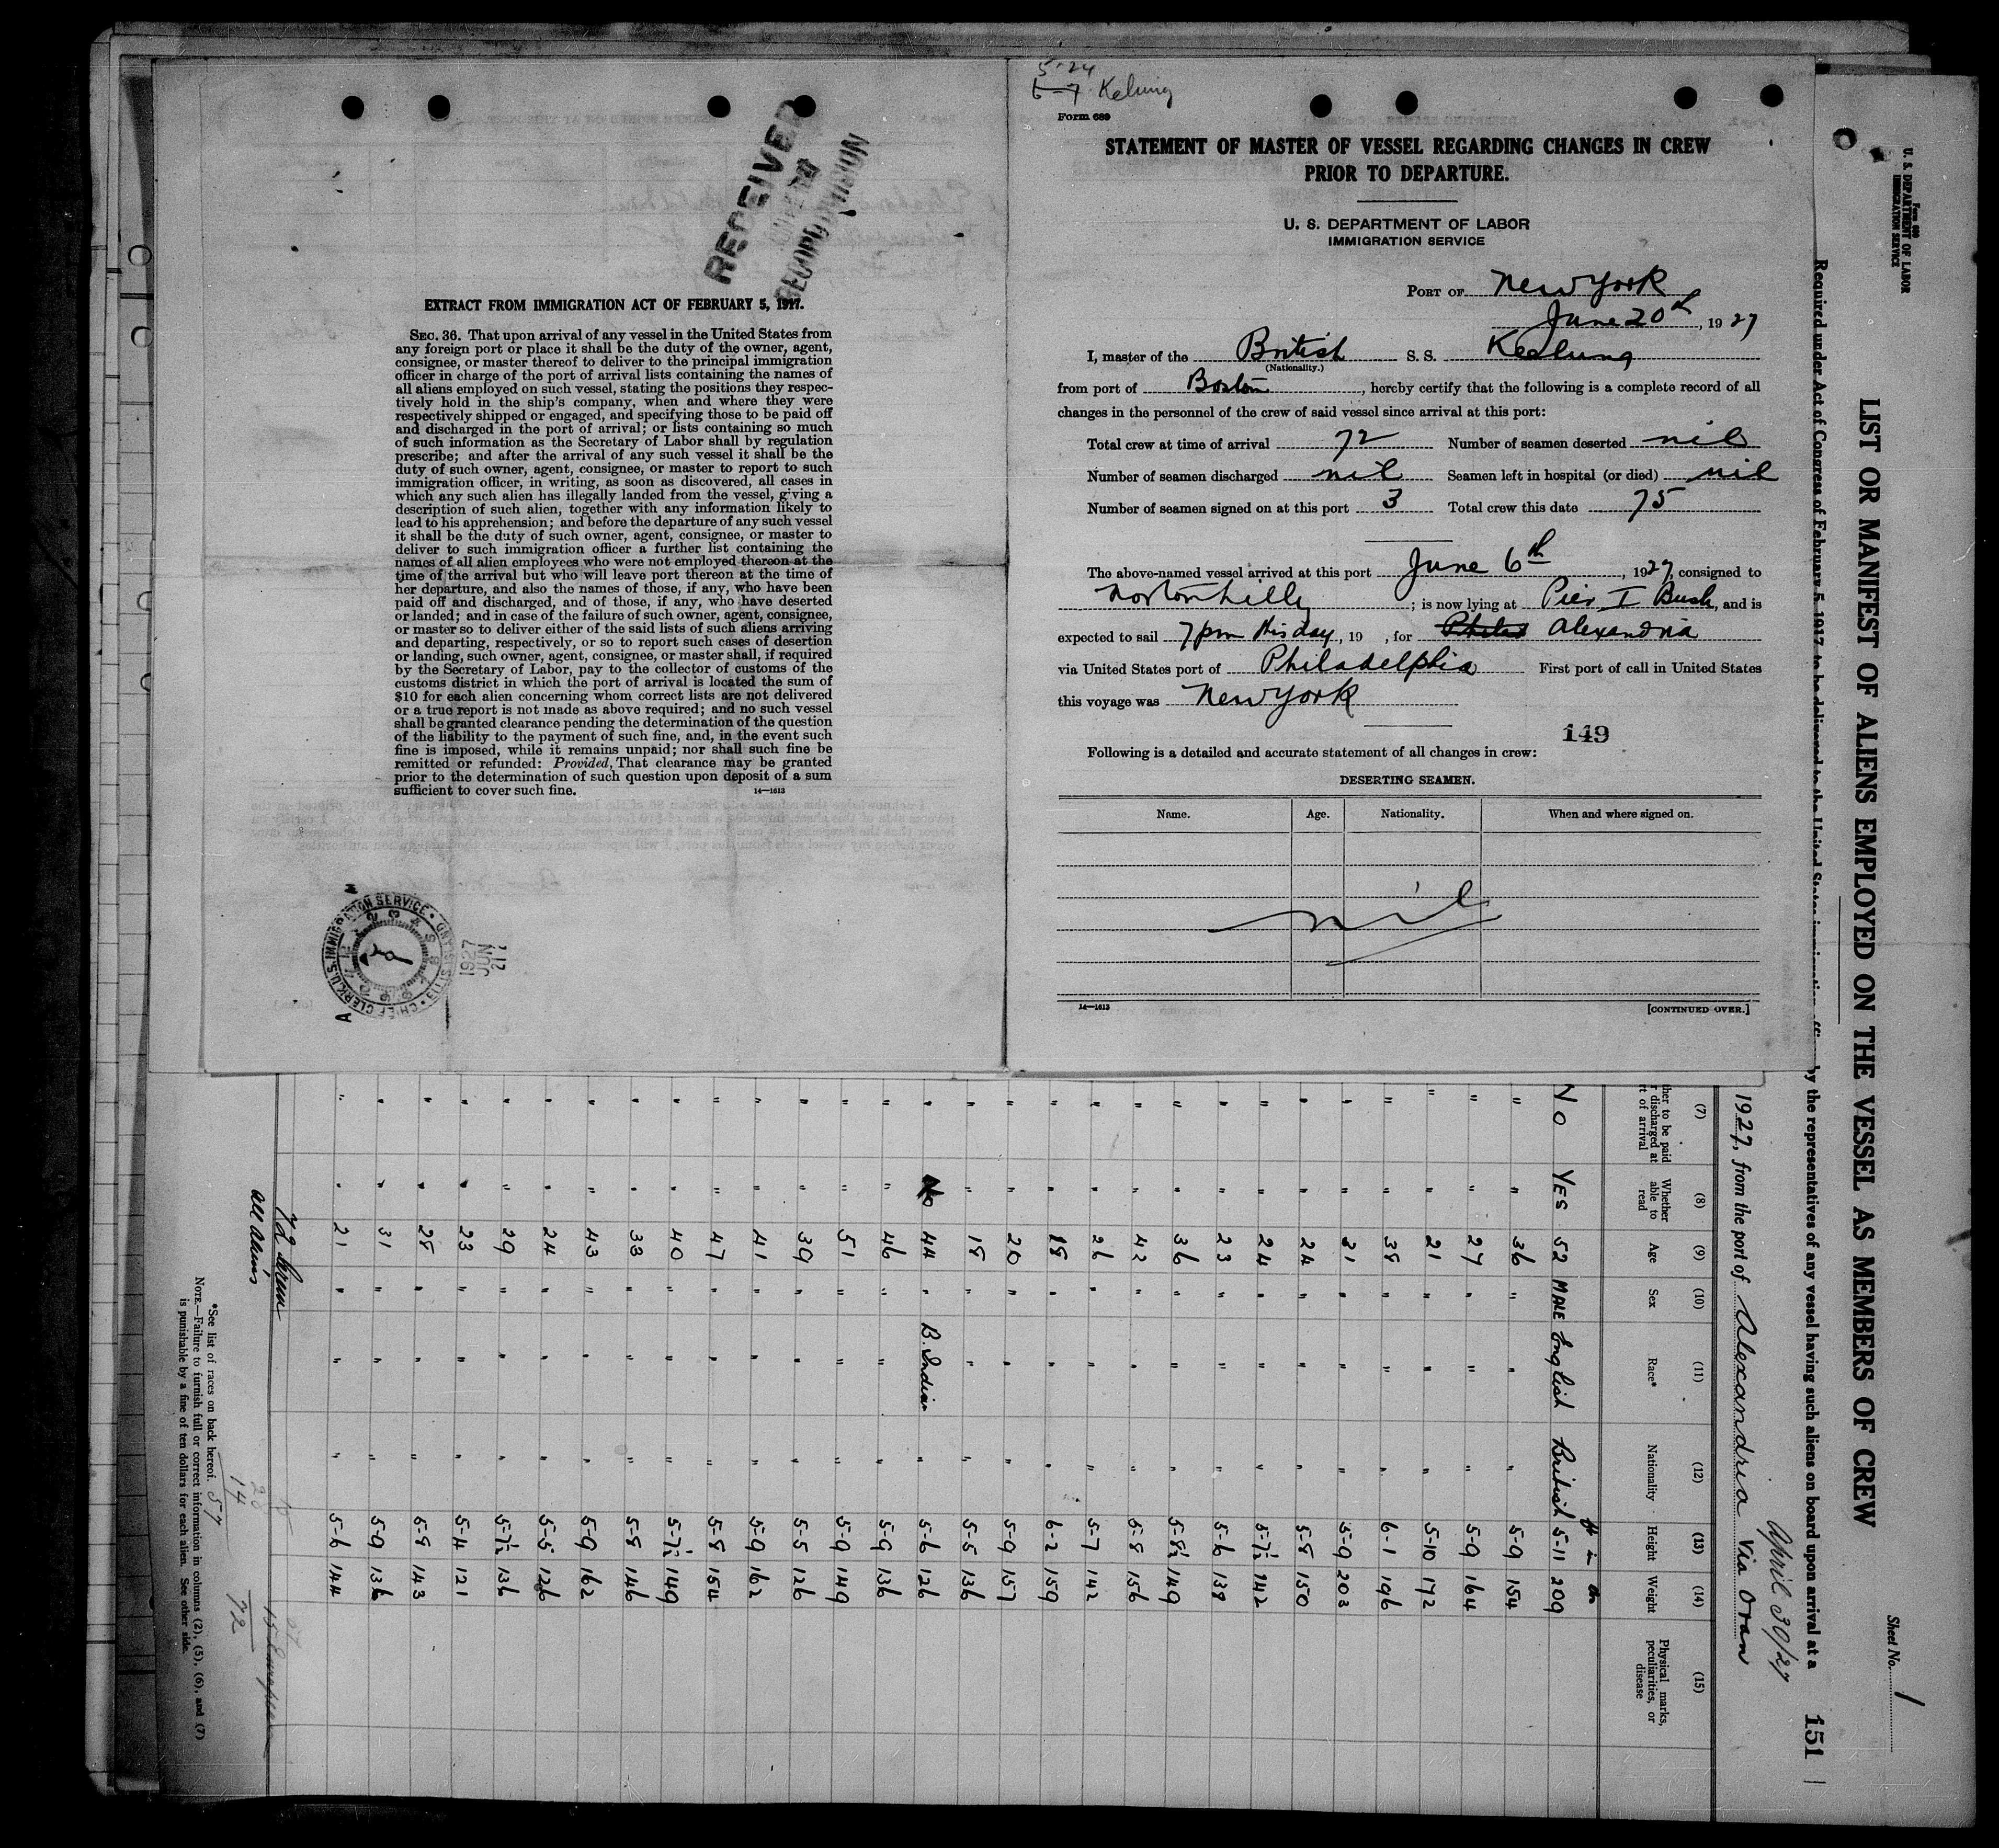 RECEIVED
RECORD DIVISION
EXTRACT FROM IMMIGRATION ACT OF FEBRUARY 5, 1917.
SEC. 36. That upon arrival of any vessel in the United States from
any foreign port or place it shall be the duty of the owner, agent,
consignee, or master thereof to deliver to the principal immigration
officer in charge of the port of arrival lists containing the names of
all aliens employed on such vessel, stating the positions they respec-
tively hold in the ship's company, when and where they were
respectively shipped or engaged, and specifying those to be paid off
and discharged in the port of arrival; or lists containing so much
of such information as the Secretary of Labor shall by regulation
prescribe; and after the arrival of any such vessel it shall be the
duty of such owner, agent, consignee, or master to report to such
immigration officer, in writing, as soon as discovered, all cases in
which any such alien has illegally landed from the vessel, giving a
description of such alien, together with any information likely to
lead to his apprehension; and before the departure of any such vessel
it shall be the duty of such owner, agent, consignee, or master to
deliver to such immigration officer a further list containing the
names of all alien employees who were not employed thereon at the
time of the arrival but who will leave port thereon at the time of
her departure, and also the names of those, if any, who have been
paid off and discharged, and of those, if any, who have deserted
or landed; and in case of the failure of such owner, agent, consignee,
or master so to deliver either of the said lists of such aliens arriving
and departing, respectively, or so to report such cases of desertion
or landing, such owner, agent, consignee, or master shall, if required
by the Secretary of Labor, pay to the collector of customs of the
customs district in which the port of arrival is located the sum of
$10 for each alien concerning whom correct lists are not delivered
or a true report is not made as above required; and no such vessel
shall be granted clearance pending the determination of the question
of the liability to the payment of such fine, and, in the event such
fine is imposed, while it remains unpaid; nor shall such fine be
remitted or refunded: Provided, That clearance may be granted
prior to the determination of such question upon deposit of a sum
sufficient to cover such fine. 14—1613
CHIEF CLERK U.S. IMMIGRATION SERVICE · ELLIS ISLAND
1927
JUN
21
5-24
6-7 Kelung
Form 689
STATEMENT OF MASTER OF VESSEL REGARDING CHANGES IN CREW
PRIOR TO DEPARTURE.
U. S. DEPARTMENT OF LABOR
IMMIGRATION SERVICE
PORT OF New York
June 20th, 1927
I, master of the British S. S. Keelung
(Nationality.)
from port of Boston, hereby certify that the following is a complete record of all
changes in the personnel of the crew of said vessel since arrival at this port:
Total crew at time of arrival 72 Number of seamen deserted nil
Number of seamen discharged nil Seamen left in hospital (or died) nil
Number of seamen signed on at this port 3 Total crew this date 75
The above-named vessel arrived at this port June 6th, 1927, consigned to
Norton Lilly; is now lying at Pier I Bush, and is
expected to sail 7pm this day, 19 , for Alexandria
via United States port of Philadelphia First port of call in United States
this voyage was New York
149
Following is a detailed and accurate statement of all changes in crew:
DESERTING SEAMEN.
Name. Age. Nationality. When and where signed on.
nil
14—1613 [CONTINUED OVER.]
Form 689
U. S. DEPARTMENT OF LABOR
IMMIGRATION SERVICE
Sheet No. 1
LIST OR MANIFEST OF ALIENS EMPLOYED ON THE VESSEL AS MEMBERS OF CREW
Required under Act of Congress of February 5, 1917, to be delivered to the United States immigration by the representatives of any vessel having such aliens on board upon arrival at a
151
April 30/27
1927, from the port of Alexandria via Oran
(7) (8) (9) (10) (11) (12) (13) (14) (15)
ther to be paid
discharged at
rt of arrival
Whether able to read
Age
Sex
Race*
Nationality
Height
Weight
Physical marks, peculiarities, or disease
No YES 52 MALE English British 5-11 209
" " 36 " " " 5-9 154
" " 27 " " " 5-9 164
" " 21 " " " 5-10 172
" " 38 " " " 6-1 196
" " 31 " " " 5-9 203
" " 24 " " " 5-8 150
" " 24 " " " 5-7½ 142
" " 23 " " " 5-6 138
" " 36 " " " 5-8½ 149
" " 42 " " " 5-8 156
" " 26 " " " 5-7 142
" " 18 " " " 6-2 159
" " 20 " " " 5-9 157
" " 18 " " " 5-5 136
" No 44 " B. Indian " 5-6 126
" " 46 " " " 5-9 136
" " 51 " " " 5-9 149
" " 39 " " " 5-5 126
" " 41 " " " 5-9 162
" " 47 " " " 5-8 154
" " 40 " " " 5-7½ 149
" " 33 " " " 5-8 146
" " 43 " " " 5-9 162
" " 24 " " " 5-5 126
" " 29 " " " 5-7½ 136
" " 23 " " " 5-4 121
" " 28 " " " 5-8 143
" " 31 " " " 5-9 136
" " 21 " " " 5-6 144
72 crew
all aliens
*See list of races on back hereof.
NOTE.—Failure to furnish full or correct information in columns (2), (5), (6), and (7)
is punishable by a fine of ten dollars for each alien. See other side.
57
14
72